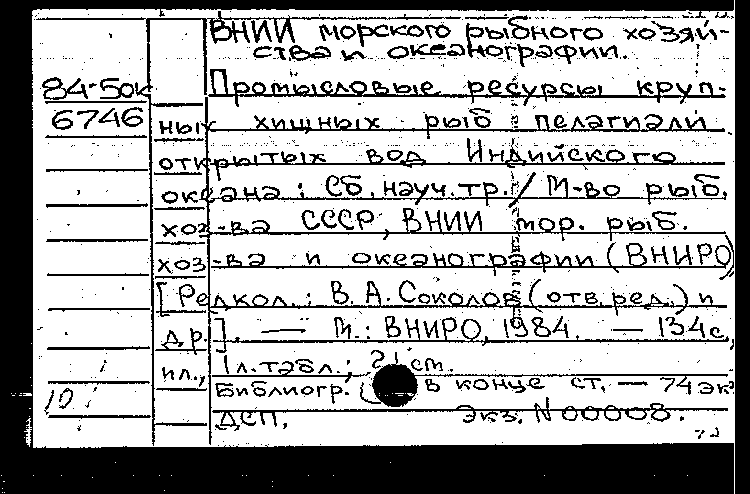 ВНИИ морского рыбного хозяй-
ства и океанографии.
84-5ок
Промысловые ресурсы круп-
6746
ных хищных рыб пелагиали
открытых вод Индийского
океана: Сб. науч. тр. / М-во рыб.
хоз-ва СССР, ВНИИ мор. рыб.
хоз-ва и океанографии (ВНИРО)
[Редкол.: В. А. Соколов (отв. ред.) и
др.]. — М.: ВНИРО, 1984. — 134с.,
ил., 1 л. табл.; 21 см.
Библиогр. в конце ст. — 74 экз
10
ДСП. Экз. N 00008.